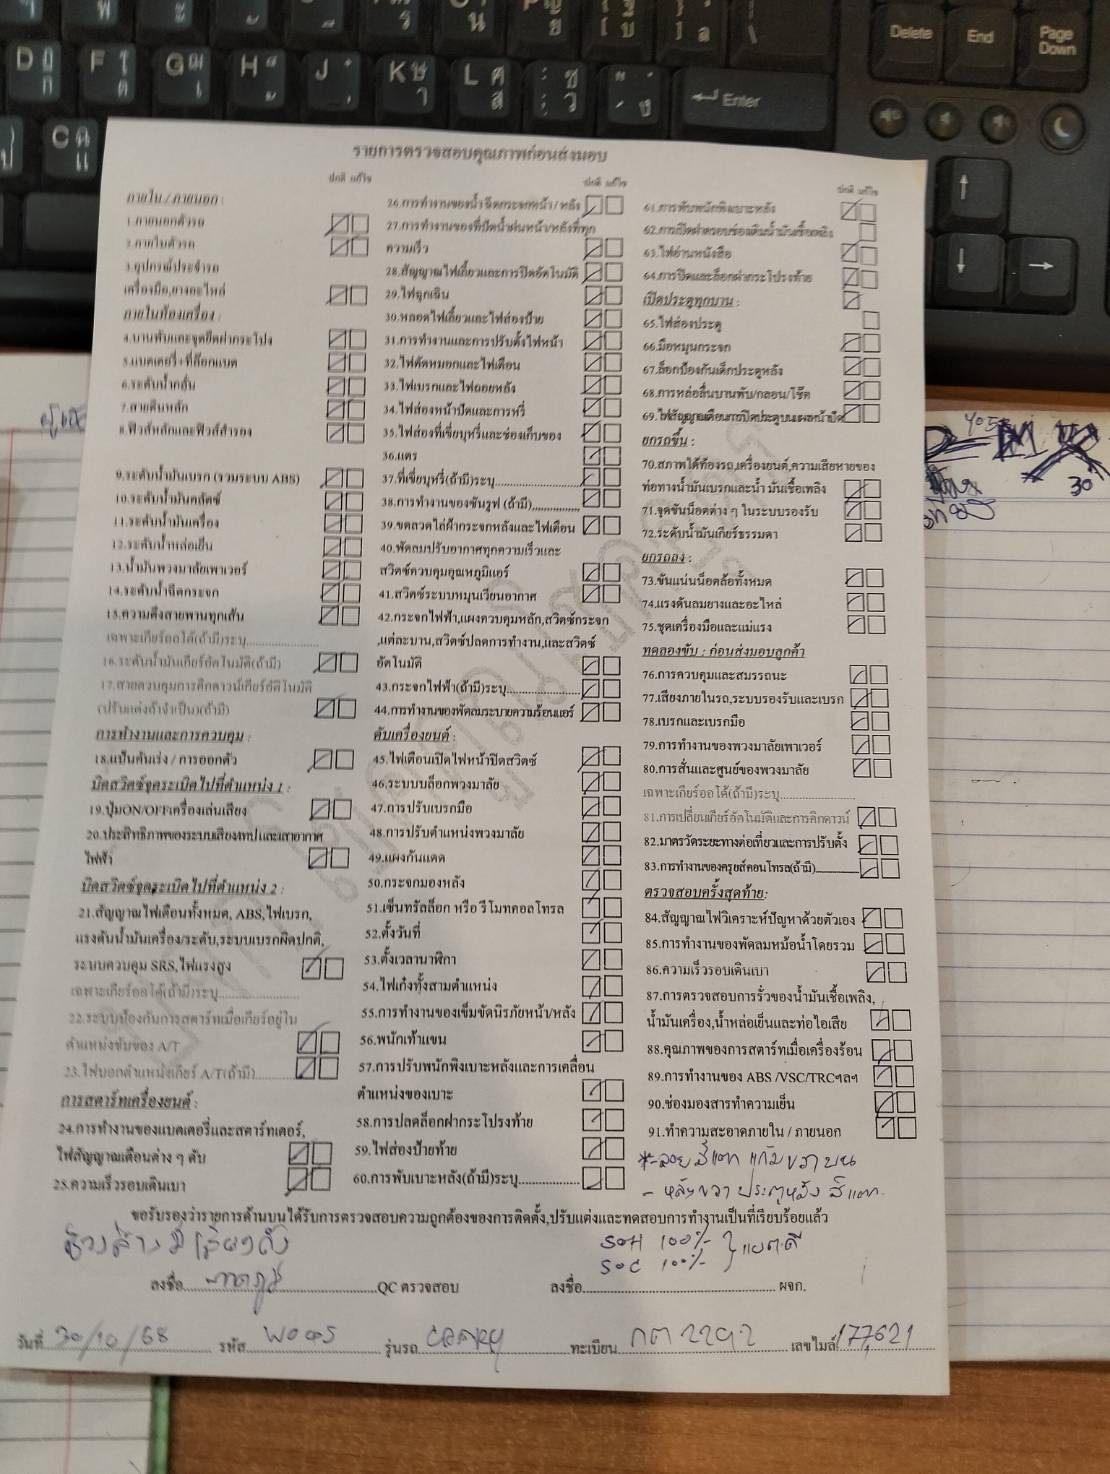 Delete
End
Page Down
D
F
G
H
J
K
L
C
Enter
รายการตรวจสอบคุณภาพก่อนส่งมอบ
ปกติ แก้ไข
ภายใน / ภายนอก :
1.ภายนอกตัวรถ
2.ภายในตัวรถ
3.อุปกรณ์ประจำรถ
เครื่องมือ,ยางอะไหล่
ภายในห้องเครื่อง :
4.บานพับและจุดยึดฝากระโปรง
5.แบตเตอรี่+ที่ล็อกแบต
6.ระดับน้ำกลั่น
7.สายดินหลัก
8.ฟิวส์หลักและฟิวส์สำรอง
9.ระดับน้ำมันเบรก (รวมระบบ ABS)
10.ระดับน้ำมันคลัตช์
11.ระดับน้ำมันเครื่อง
12.ระดับน้ำหล่อเย็น
13.น้ำมันพวงมาลัยเพาเวอร์
14.ระดับน้ำฉีดกระจก
15.ความตึงสายพานทุกเส้น
เฉพาะเกียร์ออโต้(ถ้ามี)ระบุ
16.ระดับน้ำมันเกียร์อัตโนมัติ(ถ้ามี)
17.สายควบคุมการคิกดาวน์เกียร์อัติโนมัติ
(ปรับแต่งถ้าจำเป็น)(ถ้ามี)
การทำงานและการควบคุม :
18.แป้นคันเร่ง / การออกตัว
บิดสวิตช์จุดระเบิดไปที่ตำแหน่ง 1 :
19.ปุ่มON/OFFเครื่องเล่นเสียง
20.ประสิทธิภาพของระบบเสียงเทปและเสาอากาศ
ไฟฟ้า
บิดสวิตช์จุดระเบิดไปที่ตำแหน่ง 2 :
21.สัญญาณไฟเตือนทั้งหมด, ABS,ไฟเบรก,
แรงดันน้ำมันเครื่อง/ระดับ,ระบบเบรกผิดปกติ,
ระบบควบคุม SRS,ไฟแรงสูง
เฉพาะเกียร์ออโต้(ถ้ามี)ระบุ
22.ระบบป้องกันการสตาร์ทเมื่อเกียร์อยู่ใน
ตำแหน่งขับของ A/T
23.ไฟบอกตำแหน่งเกียร์ A/T(ถ้ามี)
การสตาร์ทเครื่องยนต์ :
24.การทำงานของแบตเตอรี่และสตาร์ทเตอร์,
ไฟสัญญาณเตือนต่าง ๆ ดับ
25.ความเร็วรอบเดินเบา
ปกติ แก้ไข
26.การทำงานของน้ำฉีดกระจกหน้า/หลัง
27.การทำงานของที่ปัดน้ำฝนหน้า/หลังที่ทุก
ความเร็ว
28.สัญญาณไฟเลี้ยวและการปิดอัตโนมัติ
29.ไฟฉุกเฉิน
30.หลอดไฟเลี้ยวและไฟส่องป้าย
31.การทำงานและการปรับตั้งไฟหน้า
32.ไฟตัดหมอกและไฟเตือน
33.ไฟเบรกและไฟถอยหลัง
34.ไฟส่องหน้าปัดและการหรี่
35.ไฟส่องที่เขี่ยบุหรี่และช่องเก็บของ
36.แตร
37.ที่เขี่ยบุหรี่(ถ้ามี)ระบุ
38.การทำงานของซันรูฟ (ถ้ามี)
39.ขดลวดไล่ฝ้ากระจกหลังและไฟเตือน
40.พัดลมปรับอากาศทุกความเร็วและ
สวิตช์ควบคุมอุณหภูมิแอร์
41.สวิตช์ระบบหมุนเวียนอากาศ
42.กระจกไฟฟ้า,แผงควบคุมหลัก,สวิตช์กระจก
,แต่ละบาน,สวิตช์ปลดการทำงาน,และสวิตช์
อัตโนมัติ
43.กระจกไฟฟ้า(ถ้ามี)ระบุ
44.การทำงานของพัดลมระบายความร้อนแอร์
ดับเครื่องยนต์ :
45.ไฟเตือนเปิดไฟหน้าปิดสวิตช์
46.ระบบบล็อกพวงมาลัย
47.การปรับเบรกมือ
48.การปรับตำแหน่งพวงมาลัย
49.แผงกันแดด
50.กระจกมองหลัง
51.เซ็นทรัลล็อก หรือ รีโมทคอลโทรล
52.ตั้งวันที่
53.ตั้งเวลานาฬิกา
54.ไฟเก๋งทั้งสามตำแหน่ง
55.การทำงานของเข็มขัดนิรภัยหน้า/หลัง
56.พนักเท้าแขน
57.การปรับพนักพิงเบาะหลังและการเคลื่อน
ตำแหน่งของเบาะ
58.การปลดล็อกฝากระโปรงท้าย
59.ไฟส่องป้ายท้าย
60.การพับเบาะหลัง(ถ้ามี)ระบุ
ปกติ แก้ไข
61.การพับพนักพิงเบาะหลัง
62.การเปิดฝาครอบช่องเติมน้ำมันเชื้อเพลิง
63.ไฟอ่านหนังสือ
64.การปิดและล็อกฝากระโปรงท้าย
เปิดประตูทุกบาน :
65.ไฟส่องประตู
66.มือหมุนกระจก
67.ล็อกป้องกันเด็กประตูหลัง
68.การหล่อลื่นบานพับ/กลอน/โช๊ค
69.ไฟสัญญาณเตือนการปิดประตูบนแผงหน้าปัด
ยกรถขึ้น :
70.สภาพใต้ท้องรถ,เครื่องยนต์,ความเสียหายของ
ท่อทางน้ำมันเบรกและน้ำมันเชื้อเพลิง
71.จุดขันน็อตต่าง ๆ ในระบบรองรับ
72.ระดับน้ำมันเกียร์ธรรมดา
ยกรถลง :
73.ขันแน่นน็อตล้อทั้งหมด
74.แรงดันลมยางและอะไหล่
75.ชุดเครื่องมือและแม่แรง
ทดลองขับ : ก่อนส่งมอบลูกค้า
76.การควบคุมและสมรรถนะ
77.เสียงภายในรถ,ระบบรองรับและเบรก
78.เบรกและเบรกมือ
79.การทำงานของพวงมาลัยเพาเวอร์
80.การสั่นและศูนย์ของพวงมาลัย
เฉพาะเกียร์ออโต้(ถ้ามี)ระบุ
81.การเปลี่ยนเกียร์อัตโนมัติและการคิกดาวน์
82.มาตรวัดระยะทางต่อเที่ยวและการปรับตั้ง
83.การทำงานของครูยส์คอนโทรล(ถ้ามี)
ตรวจสอบครั้งสุดท้าย:
84.สัญญาณไฟวิเคราะห์ปัญหาด้วยตัวเอง
85.การทำงานของพัดลมหม้อน้ำโดยรวม
86.ความเร็วรอบเดินเบา
87.การตรวจสอบการรั่วของน้ำมันเชื้อเพลิง,
น้ำมันเครื่อง,น้ำหล่อเย็นและท่อไอเสีย
88.คุณภาพของการสตาร์ทเมื่อเครื่องร้อน
89.การทำงานของ ABS /VSC/TRCฯลฯ
90.ช่องมองสารทำความเย็น
91.ทำความสะอาดภายใน / ภายนอก
สีแตก แก้มขวา บน
- หลังขวา ประตูหลัง สีแตก
ขอรับรองว่ารายการด้านบนได้รับการตรวจสอบความถูกต้องของการติดตั้ง,ปรับแต่งและทดสอบการทำงานเป็นที่เรียบร้อยแล้ว
ช่วงล่างมีเสียงดัง
SOH 100%
SOC 100% แบต.ดี
ลงชื่อ QC ตรวจสอบ
ลงชื่อ ผจก.
วันที่ 30/10/68 รหัส รุ่นรถ CAMRY ทะเบียน เลขไมล์ 177,621